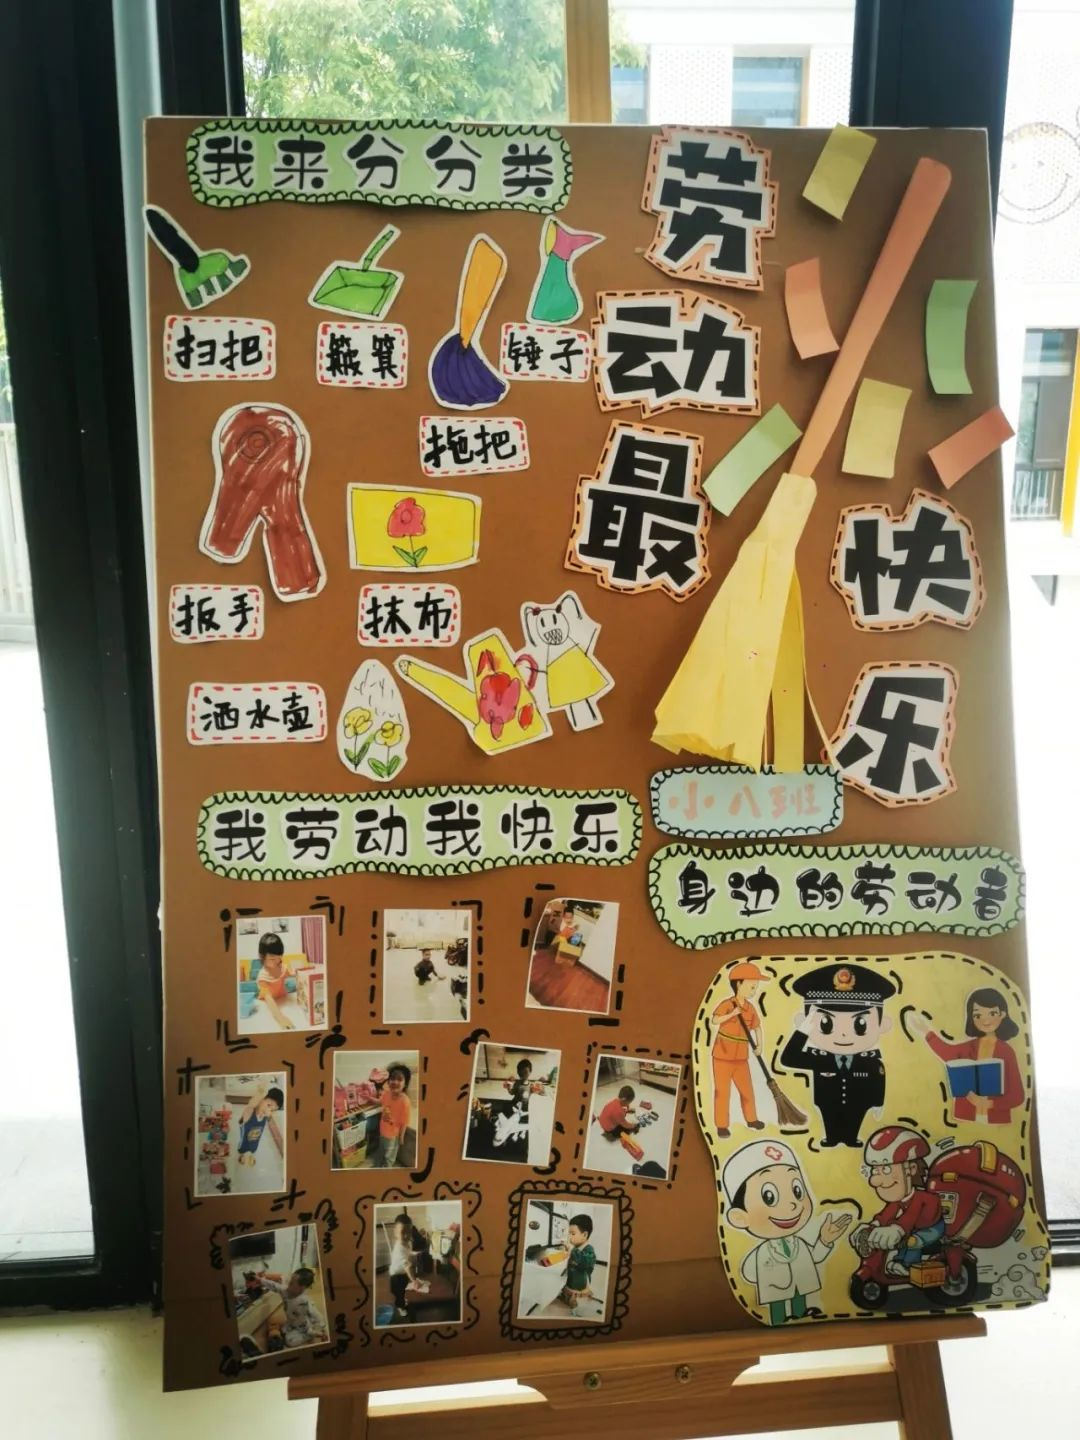 我来分分类
劳动最快乐
扫把
簸箕
锤子
拖把
扳手
抹布
洒水壶
小八班
我劳动我快乐
身边的劳动者